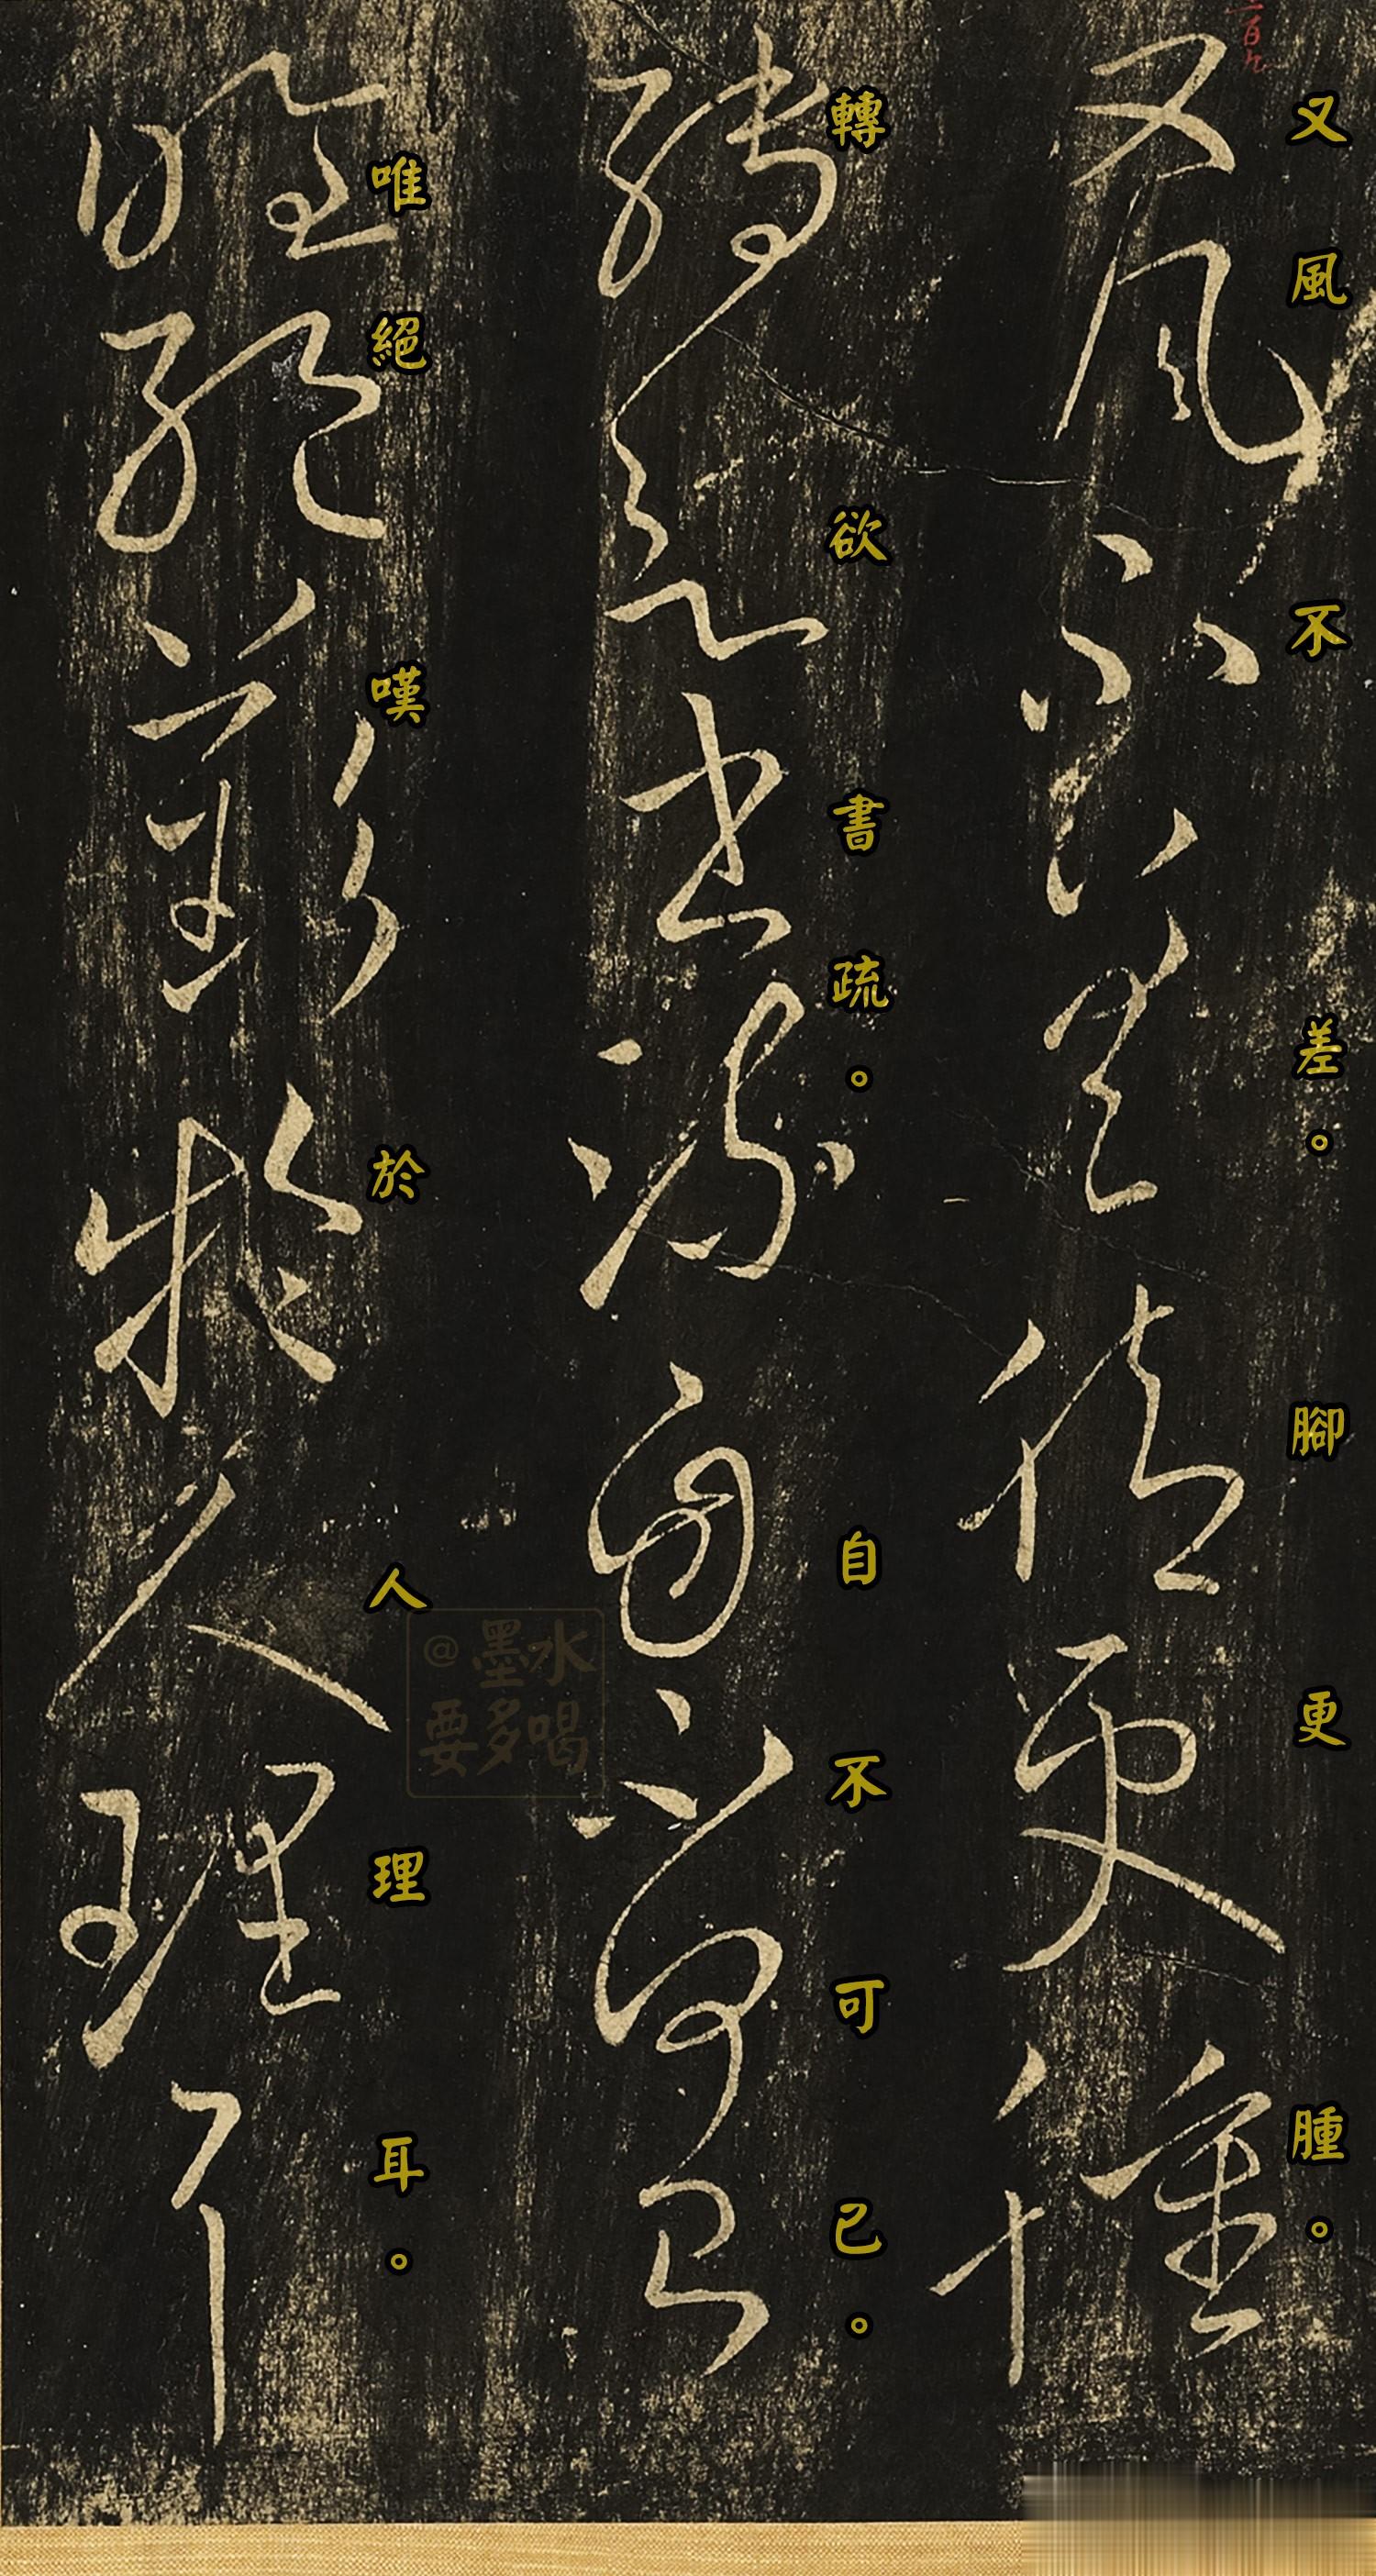 又風不差。腳更腫。
轉欲書疏。自不可已。
唯絕嘆於人理耳。
@墨水
要多喝